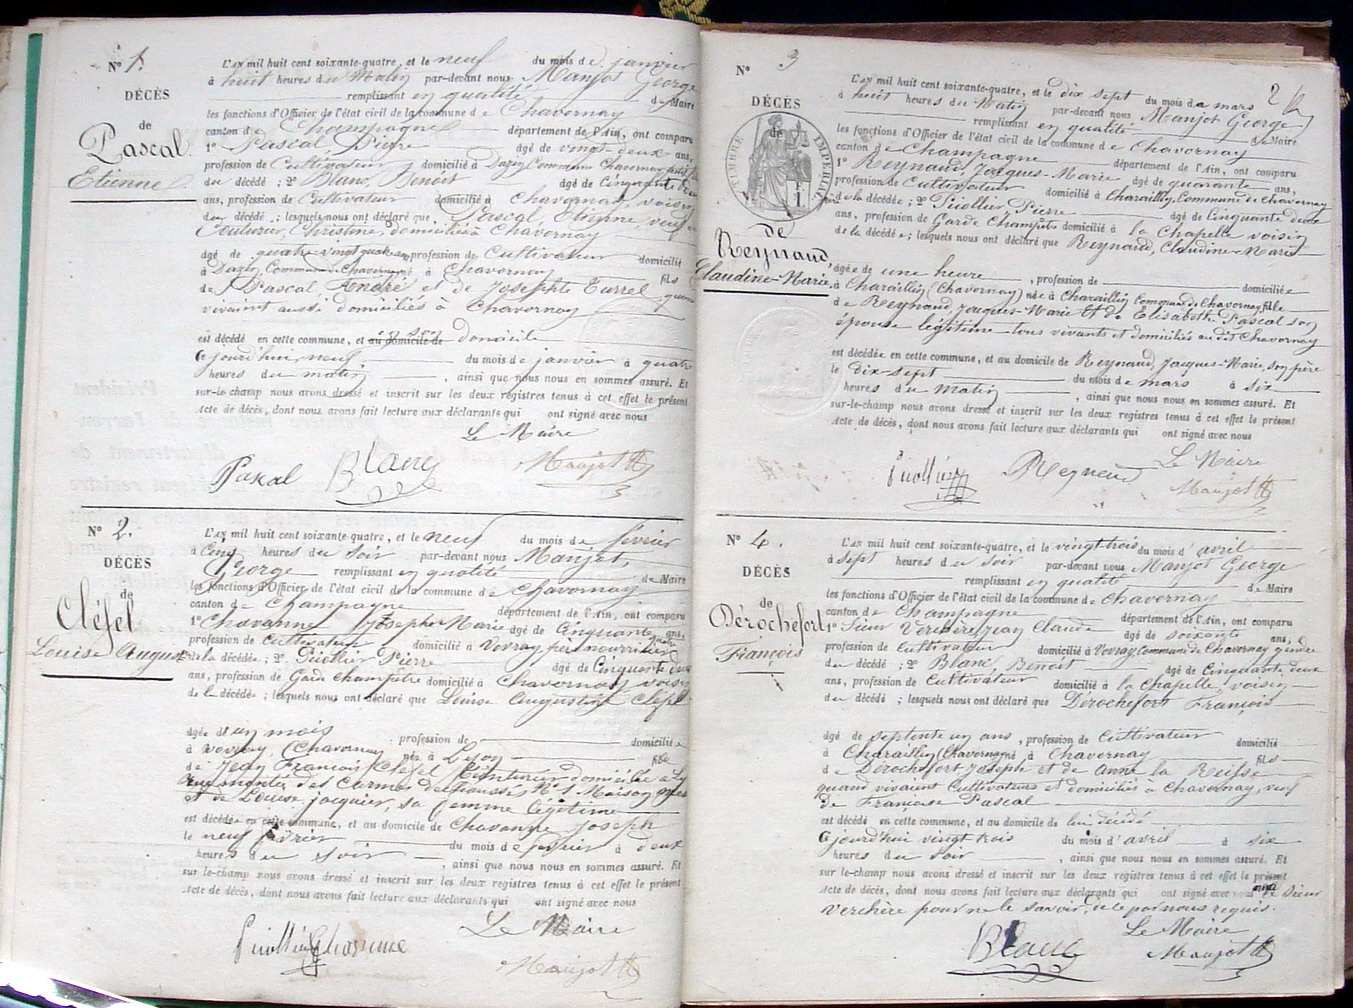 N° 1.
DÉCÈS
de
Pascal
Etienne
L'AN mil huit cent soixante-quatre, et le neuf du mois de janvier
à huit heures du Matin par-devant nous Manjot George
remplissant en qualité de Maire
les fonctions d'Officier de l'état civil de la commune de Chavornay
canton de Champagne département de l'Ain, ont comparu
1° Pascal Pierre âgé de vingt-deux ans,
profession de Cultivateur domicilié à Dazin Commune Chavornay petit fils
du décédé ; 2° Blanc, Benoit âgé de Cinquante deux
ans, profession de Cultivateur domicilié à Chavornay, voisin
du décédé ; lesquels nous ont déclaré que Pascal, Etienne, veuf de
Christine, domicilié à Chavornay
âgé de quatre-vingt-quatre ans, profession de Cultivateur domicilié
à Dazin Commune Chavornay né à Chavornay fils
de Pascal André et de Josephte Turrel, quand
vivaient aussi domiciliés à Chavornay
est décédé en cette commune, et au domicile de en son domicile
Ajourd'hui neuf du mois de janvier à quatre
heures du matin, ainsi que nous nous en sommes assuré. Et
sur-le-champ nous avons dressé et inscrit sur les deux registres tenus à cet effet le présent
acte de décès, dont nous avons fait lecture aux déclarants qui ont signé avec nous
Le Maire
Paskal Blanc Manjot
N° 2.
DÉCÈS
de
Cléfel
Louise August
L'AN mil huit cent soixante-quatre, et le neuf du mois de février
à Cinq heures du soir par-devant nous Manjot,
George remplissant en qualité de Maire
les fonctions d'Officier de l'état civil de la commune de Chavornay
canton de Champagne département de l'Ain, ont comparu
1° Chavanne Joseph Marie âgé de Cinquante ans,
profession de Cultivateur domicilié à Vovray, père nourricier
de la décédée ; 2° Puollier Pierre âgé de Cinquante deux
ans, profession de Garde Champêtre domicilié à Chavornay voisin
de la décédée ; lesquels nous ont déclaré que Louise Augustine Cléfel
âgée d'un mois, profession de domiciliée
à Vovray (Chavornay née à Lyon fille
de Jean François Cléfel Teinturier domicilié à Lyon
rue montée des Carmes Déchaussés, N° 1 Maison
et de Louise Jacquier, sa femme légitime
est décédée en cette commune, et au domicile de Chavanne Joseph
le neuf février du mois de février à deux
heures du soir, ainsi que nous nous en sommes assuré. Et
sur-le-champ nous avons dressé et inscrit sur les deux registres tenus à cet effet le présent
acte de décès, dont nous avons fait lecture aux déclarants qui ont signé avec nous
Le Maire
Puollier Chavanne
Manjot
2
N° 3
DÉCÈS
de
TIMBRE IMPÉRIAL
de
Reynaud,
Claudine-Marie
L'AN mil huit cent soixante-quatre, et le dix sept du mois de mars
à huit heures du Matin par-devant nous Manjot George
remplissant en qualité de Maire
les fonctions d'Officier de l'état civil de la commune de Chavornay
canton de Champagne département de l'Ain, ont comparu
1° Reynaud, Jacques-Marie âgé de quarante ans,
profession de Cultivateur domicilié à Charaillin, Commune de Chavornay
de la décédée ; 2° Puollier, Pierre âgé de Cinquante deux
ans, profession de Garde Champêtre domicilié à la Chapelle voisin
de la décédée ; lesquels nous ont déclaré que Reynaud, Claudine-Marie
âgée de une heure, profession de domiciliée
à Charaillin (Chavornay) née à Charaillin Commune de Chavornay fille
de Reynaud Jacques-Marie et de Elisabeth Pascal son
épouse légitime tous vivants et domiciliés au dit Chavornay
est décédée en cette commune, et au domicile de Reynaud, Jacques-Marie, son père
le dix-sept du mois de mars à six
heures du matin, ainsi que nous nous en sommes assuré. Et
sur-le-champ nous avons dressé et inscrit sur les deux registres tenus à cet effet le présent
acte de décès, dont nous avons fait lecture aux déclarants qui ont signé avec nous
Le Maire
Puollier Reynaud Manjot
N° 4.
DÉCÈS
de
Dérochefort
François
L'AN mil huit cent soixante-quatre, et le vingt-trois du mois d'avril
à sept heures du soir par-devant nous Manjot George
remplissant en qualité de Maire
les fonctions d'Officier de l'état civil de la commune de Chavornay
canton de Champagne département de l'Ain, ont comparu
1° Sieur Verchère, Jean Claude âgé de soixante ans,
profession de Cultivateur domicilié à Vovray Commune de Chavornay gendre
du décédé ; 2° Blanc, Benoit âgé de Cinquante deux
ans, profession de Cultivateur domicilié à la Chapelle, voisin
du décédé ; lesquels nous ont déclaré que Dérochefort François
âgé de septente un ans, profession de Cultivateur domicilié
à Charaillin (Chavornay) né à Chavornay fils
de Dérochefort Joseph et de Anne la Reisse
quand vivaient Cultivateurs et domiciliés à Chavornay, veuf
de Françoise Pascal
est décédé en cette commune, et au domicile de lui dédé
Ajourd'hui vingt trois du mois d'avril à six
heures du soir, ainsi que nous nous en sommes assuré. Et
sur-le-champ nous avons dressé et inscrit sur les deux registres tenus à cet effet le présent
acte de décès, dont nous avons fait lecture aux déclarants qui ont signé avec nous le Sieur
Verchère pour ne le savoir, de le par nous requis.
Le Maire
Blanc Manjot